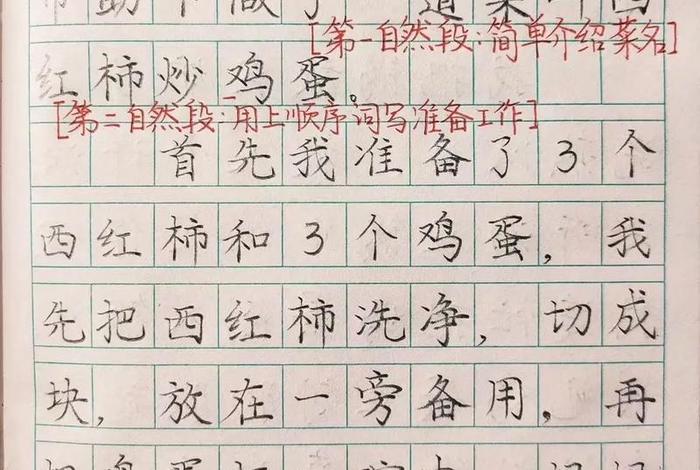 助下做了一道菜叫西
[第一自然段:简单介绍菜名]
红柿炒鸡蛋。
[第二自然段:用上顺序词写准备工作]
首先我准备了3个
西红柿和3个鸡蛋,我
先把西红柿洗净,切成
块,放在一旁备用,再
把鸡蛋打